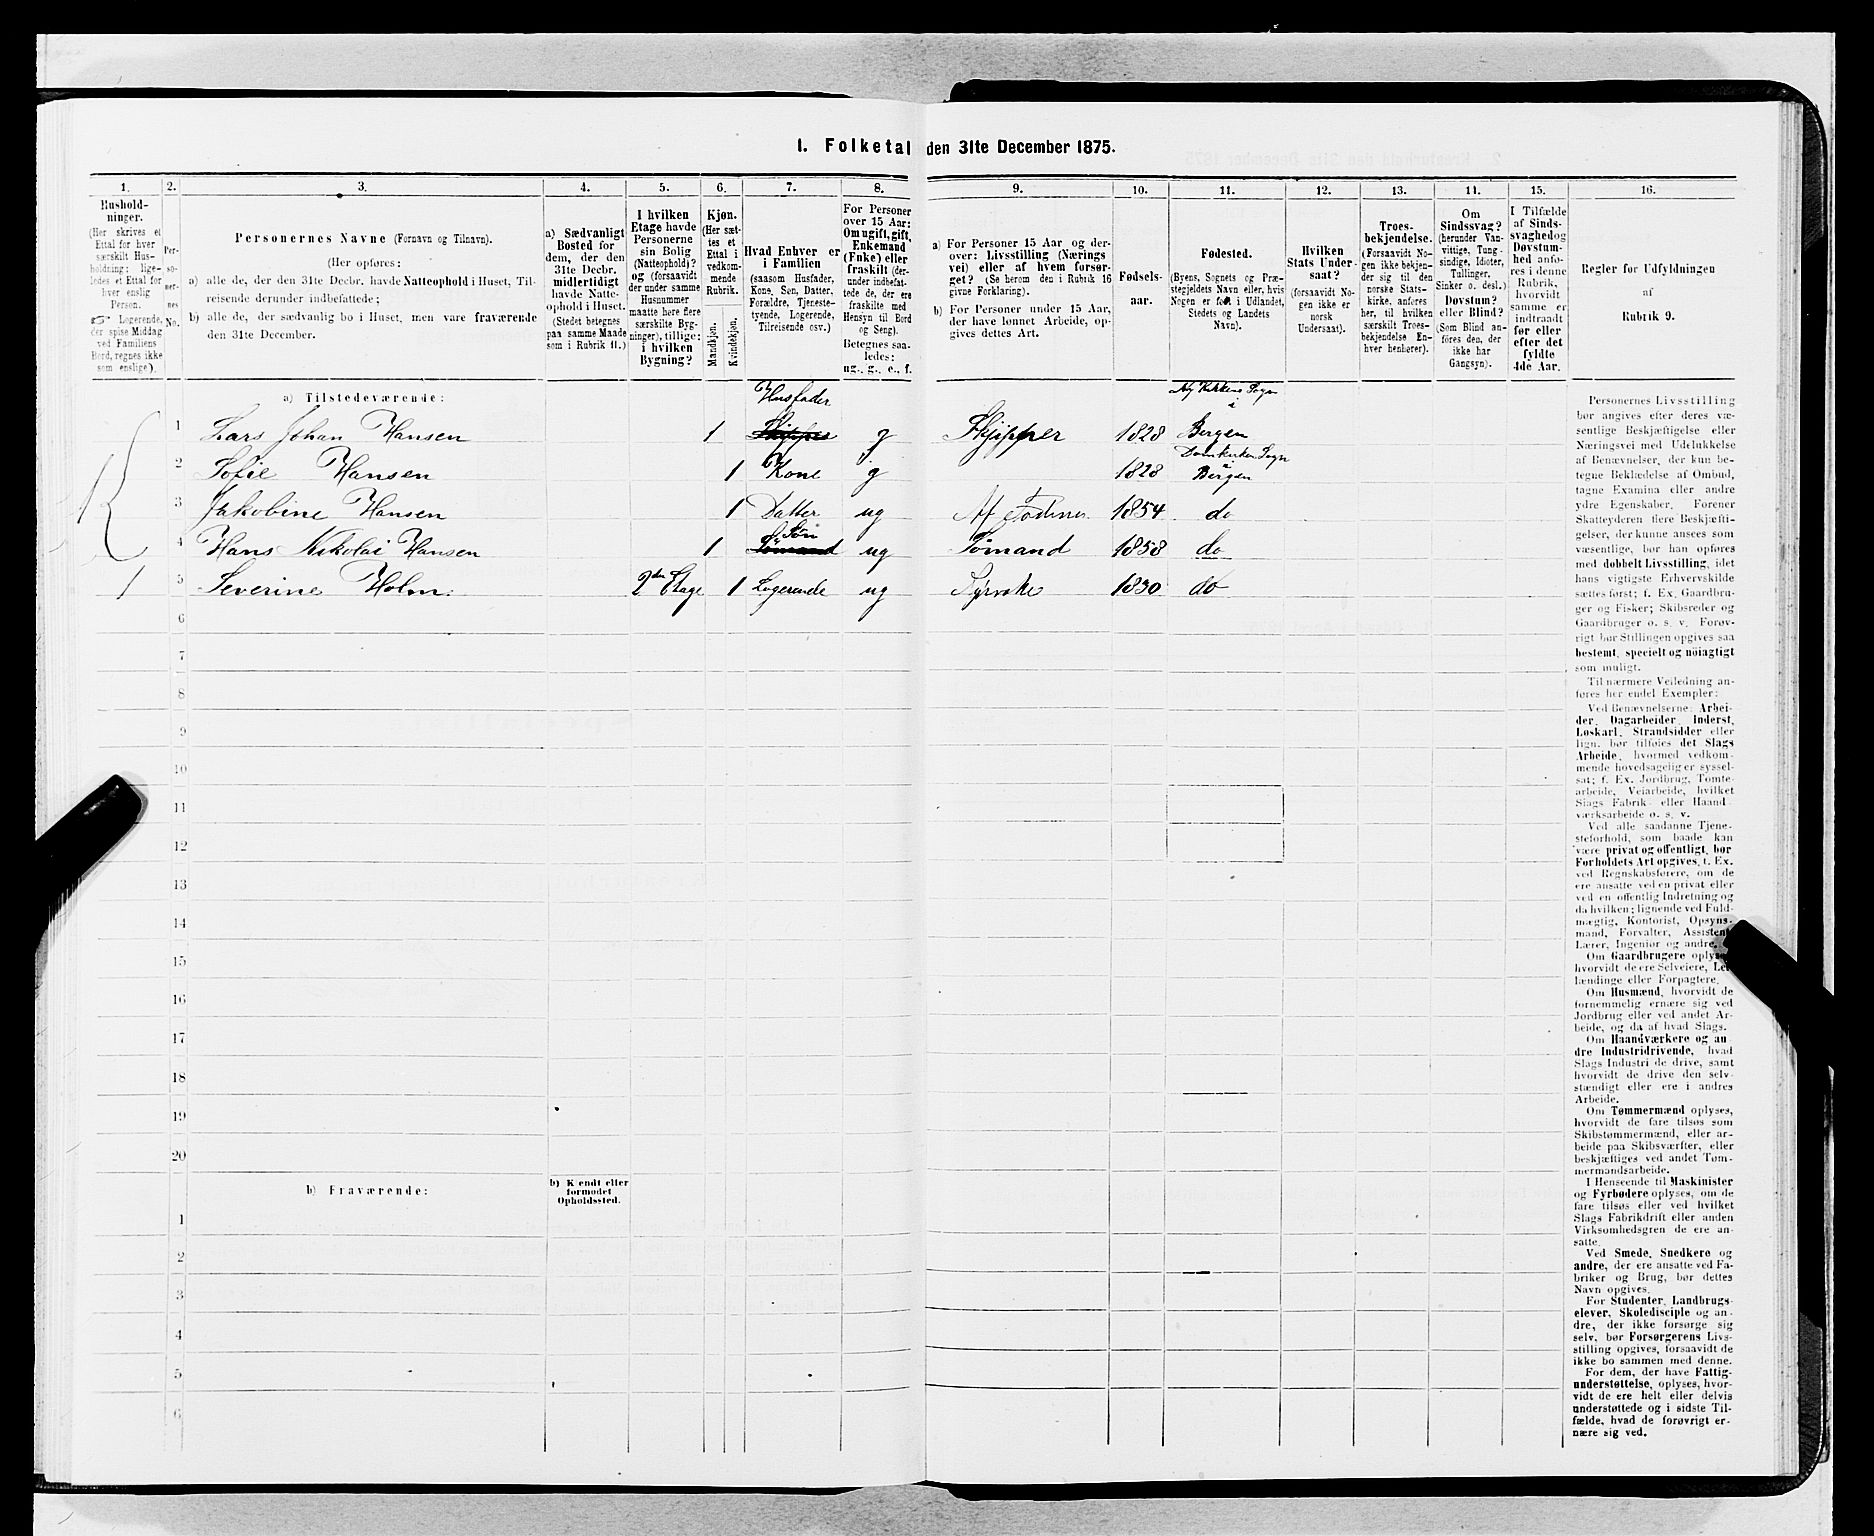 1. Folketal den 31te December 1875.
1. 2. 3. 4. 5. 6. 7. 8. 9. 10. 11. 12. 13. 14. 15. 16.
Hushold-
ninger.
(Her skrives et
Ettal for hver
særskilt Hus-
holdning; lige-
ledes et Ettal for
hver enslig
Person.
☞ Logerende,
der spise Middag
ved Familiens
Bord, regnes ikke
som enslige).
Per-
so-
ner-
nes
No.
Personernes Navne (Fornavn og Tilnavn).
(Her opføres:
a) alle de, der den 31te Decbr. havde Natteophold i Huset, Til-
reisende derunder indbefattede;
b) alle de, der sædvanlig bo i Huset, men vare fraværende
den 31te December.
a) Sædvanligt
Bosted for
dem, der den
31te Decbr.
midlertidigt
havde Natte-
ophold i Huset.
(Stedet betegnes
paa samme Maade
som i Rubrik 11.)
I hvilken
Etage havde
Personerne
sin Bolig
(Natteophold)?
og (forsaavidt
der under samme
Husnummer
maatte høre flere
særskilte Byg-
ninger), tillige:
i hvilken
Bygning?
Kjøn.
(Her sæt-
tes et
Ettal i
vedkom-
mende
Rubrik.
Mandkjøn.
Kvindekjøn.
Hvad Enhver er
i Familien
(saasom Husfader,
Kone, Søn, Datter,
Forældre, Tjeneste-
tyende, Logerende,
Tilreisende osv.)
For Personer
over 15 Aar:
Om ugift, gift,
Enkemand
(Enke) eller
fraskilt (der-
under indbefat-
tede de, der ere
fraskilte med
Hensyn til Bord
og Seng).
Betegnes saa-
ledes:
ug., g., e., f.
a) For Personer 15 Aar og der-
over: Livsstilling (Nærings
vei) eller af hvem forsør-
get? (Se herom den i Rubrik 16
givne Forklaring).
b) For Personer under 15 Aar,
der have lønnet Arbeide, op-
gives dettes Art.
Fødsels-
aar.
Fødested.
(Byens, Sognets og Præ-
stegjeldets Navn eller, hvis
Nogen er født i Udlandet,
Stedets og Landets
Navn).
Hvilken
Stats Under-
saat?
(forsaavidt No-
gen ikke er
norsk
Undersaat).
Troes-
bekjendelse.
(Forsaavidt No-
gen ikke bekjen-
der sig til den
norske Stats-
kirke, anføres
her, til hvilken
særskilt Troes-
bekjendelse En-
hver henhører).
Om
Sindssvag?
(herunder Van-
vittige, Tung-
sindige, Idioter,
Tullinger,
Sinker o. desl.)
Døvstum?
eller Blind?
(Som Blind an-
føres den, der
ikke har
Gangsyn).
I Tilfælde
af Sinds-
svaghed og
Døvstum-
hed anfø-
res i denne
Rubrik,
hvorvidt
samme er
indtraadt
før eller
efter det
fyldte
4de Aar.
Regler for Udfyldningen
af
Rubrik 9.
a) Tilstedeværende: Husfader Ny Kirkens Sogn i
1 Lars Johan Hansen 1 Skipper g Skjipper 1828 Bergen
Domkirkens Sogn
2 Sofie Hansen 1 Kone g 1828 Bergen
3 Jakobine Hansen 1 Datter ug Af Faderen 1854 do
Søn
4 Hans Nikolai Hansen 1 Sømand ug Sømand 1858 do
1 5 Severine Holm 2den Etage 1 Logerende ug Syerske 1830 do
6
7
8
9
10
11
12
13
14
15
16
17
18
19
20
b) Fraværende:
b) Kendt eller
formodet
Opholdssted.
1
2
3
4
5
6
Personernes Livsstilling
bør angives efter deres væ-
sentlige Beskjæftigelse eller
Næringsvei med Udelukkelse
af Benævnelser, der kun be-
tegne Beklædelse af Ombud,
tagne Examina eller andre
ydre Egenskaber. Forener
Skatteyderen flere Beskjæfti-
gelser, der kunne ansees som
væsentlige, bør han opføres
med dobbelt Livsstilling, idet
hans vigtigste Erhvervskilde
sættes først; f. Ex. Gaardbru-
ger og Fisker; Skibsreder og
Gaardbruger o. s. v. Forøv-
rigt bør Stillingen opgives saa
bestemt, specielt og nøiagtigt
som muligt.
Til nærmere Veiledning an-
føres her endel Exempler:
Ved Benævnelserne: Arbei-
der, Dagarbeider, Inderst,
Løskarl, Strandsidder eller
lign. bør tilføies det Slags
Arbeide, hvormed vedkom-
mende hovedsagelig er syssel-
sat; f. Ex. Jordbrug, Tomte-
arbeide, Veiarbeide, hvilket
Slags Fabrik- eller Haand-
værksarbeide o. s. v.
Ved alle saadanne Tjene-
steforhold, som baade kan
være privat og offentligt, bør
Forholdets Art opgives, t. Ex.
ved Regnskabsførere, om de
ere ansatte ved en privat eller
ved en offentlig Indretning og
da hvilken; lignende ved Fuld-
mægtig, Kontorist, Opsyns-
mand, Forvalter, Assistent,
Lærer, Ingeniør og andre.
Om Gaardbrugere oplyses,
hvorvidt de ere Selveiere, Lei-
lændinge eller Forpagtere.
Om Husmænd, hvorvidt de
fornemmelig ernære sig ved
Jordbrug eller ved andet Ar-
beide, og da af hvad Slags.
Om Haandværkere og an-
dre Industridrivende, hvad
Slags Industri de drive, samt
hvorvidt de drive den selv-
stændigt eller ere i andres
Arbeide.
Om Tømmermænd oplyses,
hvorvidt de fare tilsøs som
Skibstømmermænd, eller ar-
beide paa Skibsværfter, eller
beskjæftiges ved andet Tøm-
mermandsarbeide.
I Henseende til Maskinister
og Fyrbødere oplyses, om de
fare tilsøs eller ved hvilket
Slags Fabrikdrift eller anden
Virksomhedsgren de ere an-
satte.
Ved Smede, Snedkere og
andre, der ere ansatte ved Fa-
briker og Brug, bør dettes
Navn opgives.
For Studenter, Landbrugs-
elever, Skoledisciple og an-
dre, der ikke forsørge sig
selv, bør Forsørgerens Livs-
stilling opgives, forsaavidt de
ikke bo sammen med denne.
For dem, der have Fattig-
understøttelse, oplyses, hvor-
vidt de ere helt eller delvis
understøttede og i sidste Til-
fælde, hvad de forøvrigt er-
nære sig ved.